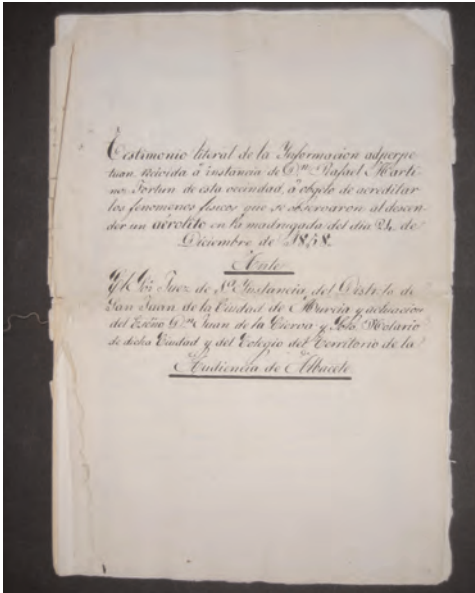 Testimonio literal de la Informacion adperpe
tuan recivida á instancia de Dn. Rafael Marti
nez Fortun de esta vecindad, á objeto de acreditar
los fenomenos fisicos que se observaron al descen
der un aérolito en la madrugada del dia 24 de
Diciembre de 1858.
Ante
El Sor Juez de 1a. Ynstancia del Distrito de
San Juan de la Ciudad de Murcia y actuacion
del Escno Dn. Juan de la Cierva y Soto Notario
de dicha Ciudad y del Colegio del Territorio de la
Audiencia de Albacete